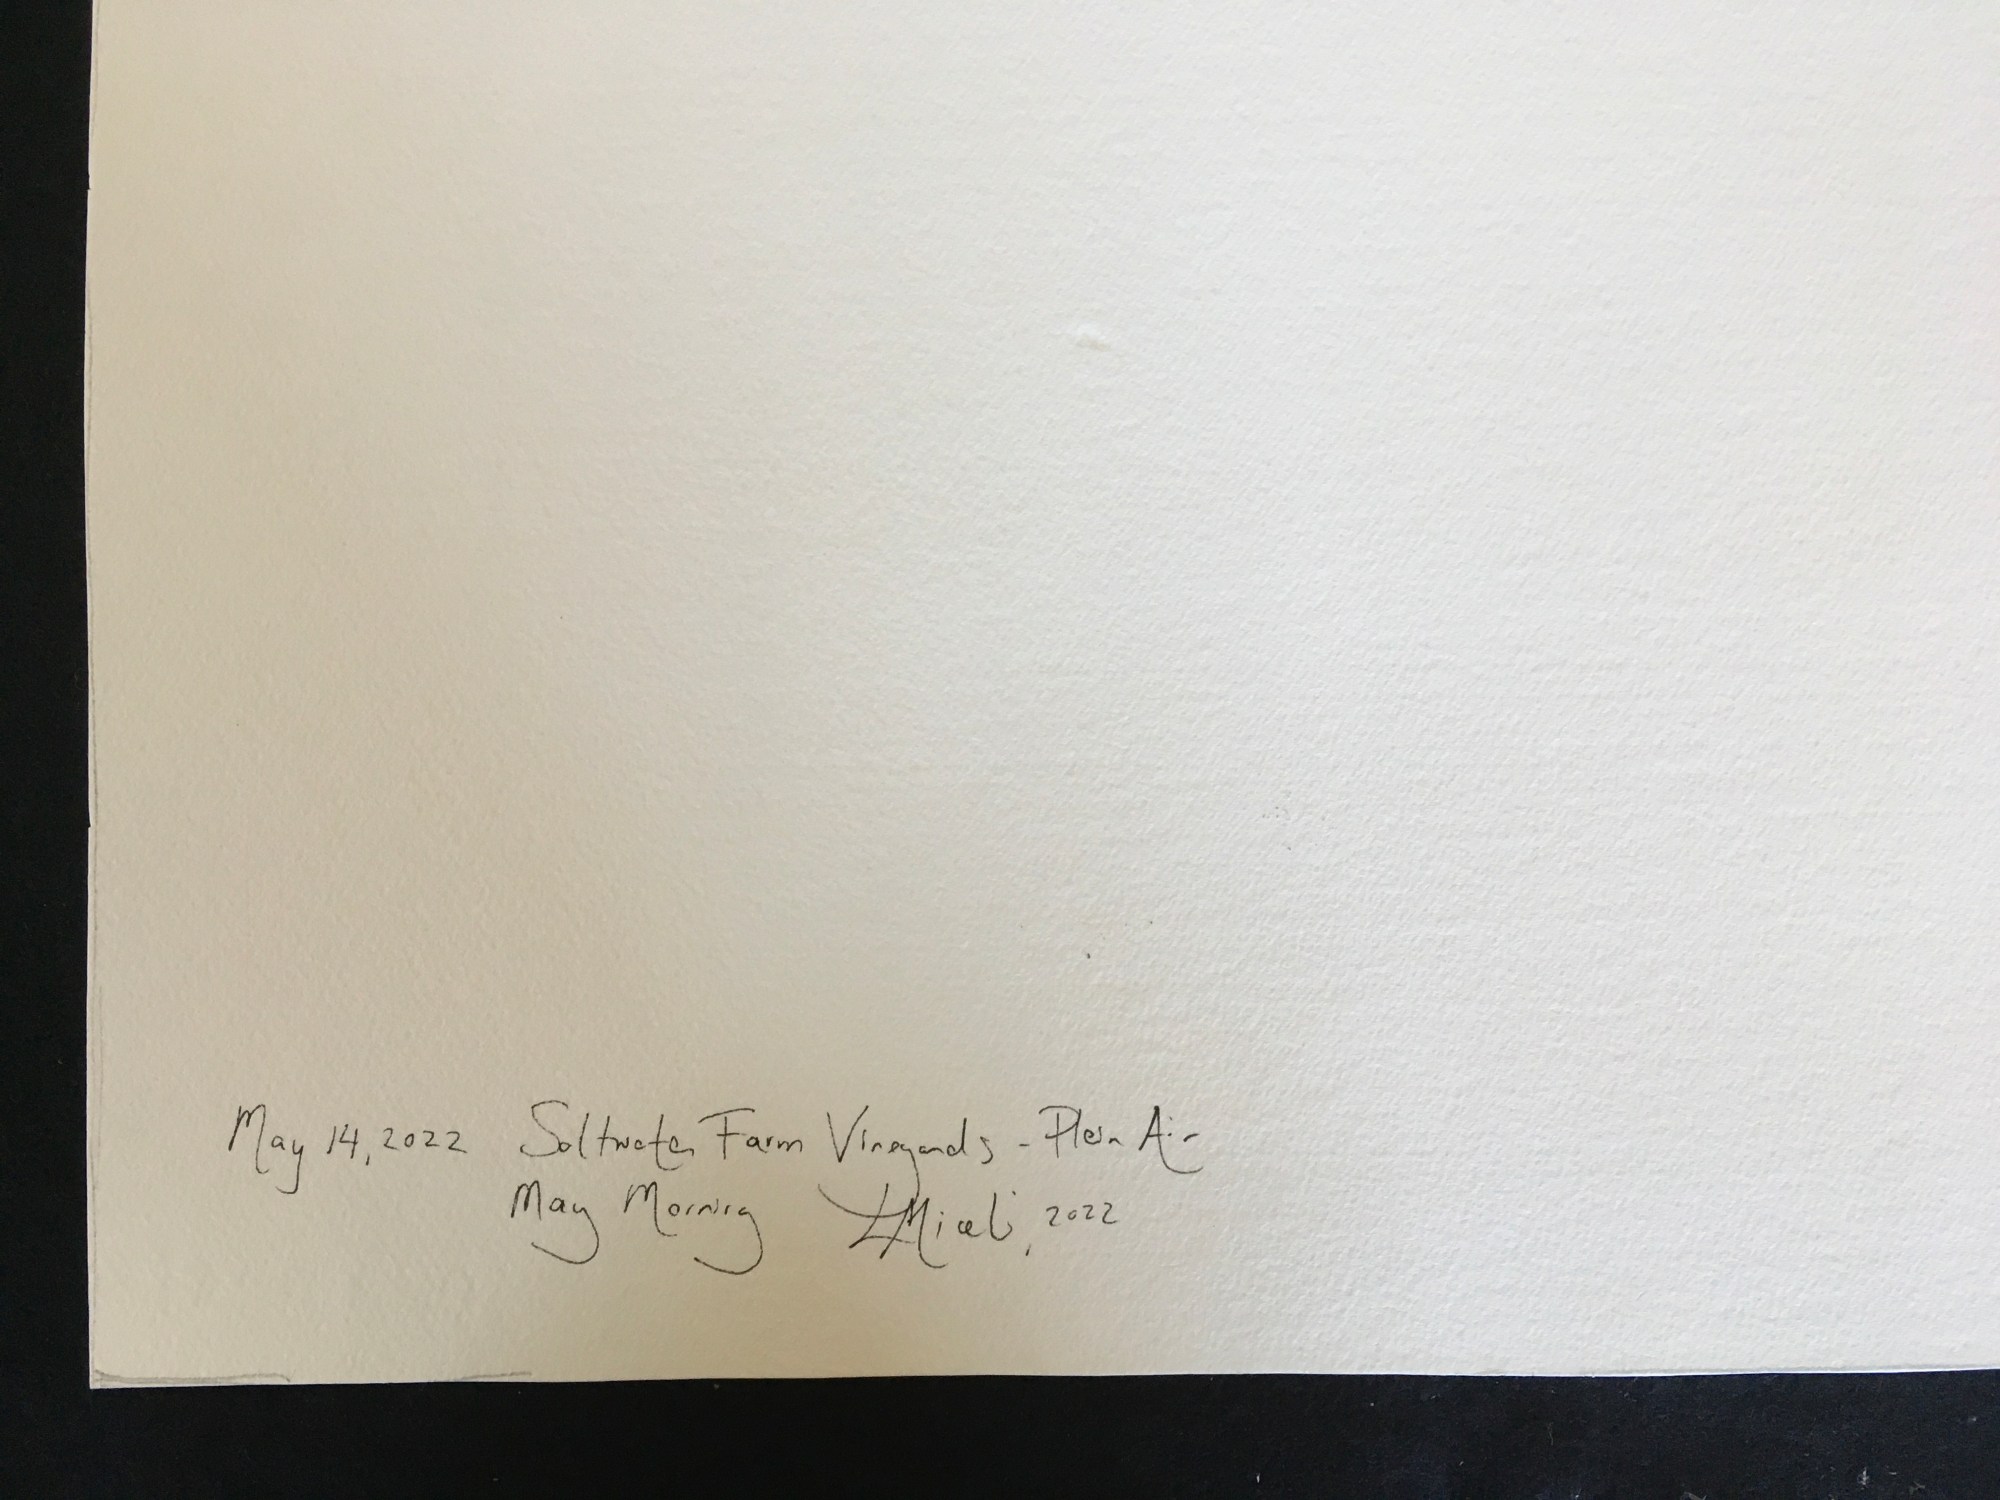 May 14, 2022 Saltwater Farm Vineyards - Plein Air
May Morning LMiceli, 2022